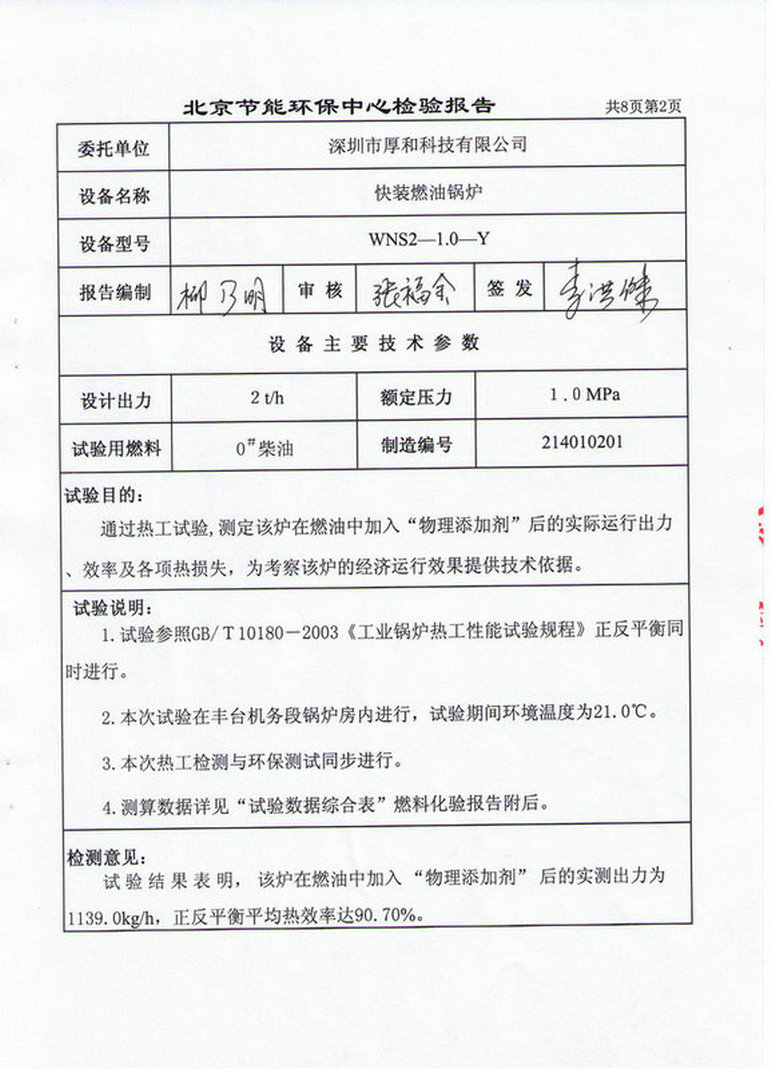 北京节能环保中心检验报告
共8页第2页
委托单位 深圳市厚和科技有限公司
设备名称 快装燃油锅炉
设备型号 WNS2—1.0—Y
报告编制 柳乃明 审核 张福全 签发 李洪杰
设备主要技术参数
设计出力 2 t/h 额定压力 1.0 MPa
试验用燃料 0#柴油 制造编号 214010201
试验目的:
通过热工试验,测定该炉在燃油中加入“物理添加剂”后的实际运行出力
、效率及各项热损失，为考察该炉的经济运行效果提供技术依据。
试验说明:
1.试验参照GB/T10180-2003《工业锅炉热工性能试验规程》正反平衡同
时进行。
2.本次试验在丰台机务段锅炉房内进行，试验期间环境温度为21.0℃。
3.本次热工检测与环保测试同步进行。
4.测算数据详见“试验数据综合表”燃料化验报告附后。
检测意见:
试验结果表明，该炉在燃油中加入“物理添加剂”后的实测出力为
1139.0kg/h，正反平衡平均热效率达90.70%。